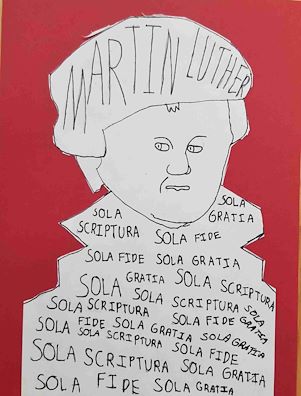 MARTIN LUTHER
SOLA
SCRIPTURA
SOLA
GRATIA
SOLA FIDE
SOLA FIDE SOLA GRATIA
SOLA GRATIA SOLA SCRIPTURA
SOLA SCRIPTURA SOLA
SOLA SCRIPTURA SOLA FIDE GRATIA
SOLA FIDE SOLA GRATIA SOLA GRATIA
SOLA SCRIPTURA SOLA FIDE
SOLA SCRIPTURA SOLA GRATIA
SOLA FIDE SOLA GRATIA